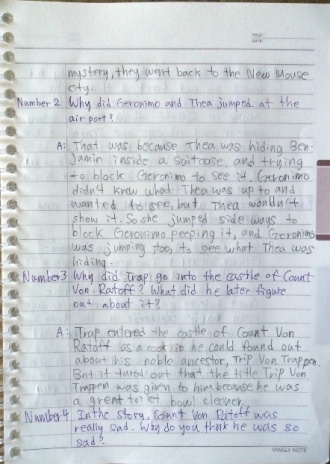 PAGE
DATE
mystery, they went back to the New Mouse
city.
Number 2 Why did Geronimo and Thea jumped at the
air port?
A: That was because Thea was hiding Ben-
jamin inside a suitcase, and trying
to block Geronimo to see it. Geronimo
didn't know what Thea was up to and
wanted to see, but Thea wouldn't
show it. So she jumped side ways to
block Geronimo peeping it, and Geronimo
was jumping too, to see what Thea was
hiding.
Number 3 Why did Trap go into the castle of Count
Von Ratoff? What did he later figure
out about it?
A: Trap entered the castle of Count Von
Ratoff as a cook so he could found out
about his noble ancestor, Trip Von Trappen.
But it turned out that the title Trip Von
Trappen was given to him because he was
a great toilet bowl cleaner.
Number 4 In the story, Count Von Ratoff was
really sad. Why do you think he was so
sad?
YANGJI NOTE